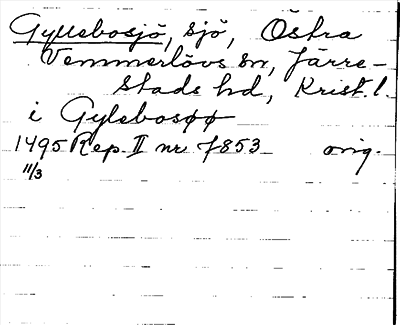 Gyllebosjö, sjö, Östra
Vemmerlövs sn, Järre-
stads hd, Krist. l.
i Gylebosøø
1495 Rep. II nr 7853 orig.
11/3